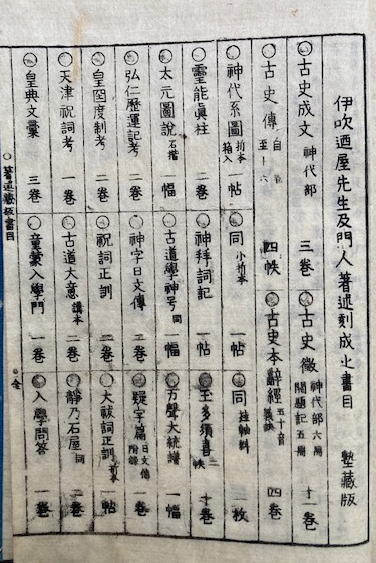 伊吹廼屋先生及門人著述刻成之書目 塾藏版
○古史成文 神代部 三卷
○古史徵 神代部六册 開題記五册 十一卷
○古史傳 自一至十六 四帙
○古史本辭經 五十音義訣 四卷
○神代系圖 折本箱入 一帖
○同 小折本 一帖
○同 挂軸料 二枚
○靈能眞柱 二卷
○神拜詞記 一帖
○玉多須喜 二帙 十卷
○太元圖說 石摺 一幅
○古道學神号 同 一幅
○五聲大統譜 一幅
○弘仁歷運記考 二卷
○神字日文傳 二卷
○疑字篇 日文傳附錄 一卷
○皇国度制考 二卷
○祝詞正訓 二卷
○大祓詞正訓 折本 一帖
○天津祝詞考 一卷
○古道大意 講本 二卷
○靜乃石屋 同 二卷
○皇典文彙 三卷
○童蒙入學門 一卷
○入學問答 一卷
○著述藏版書目
○全